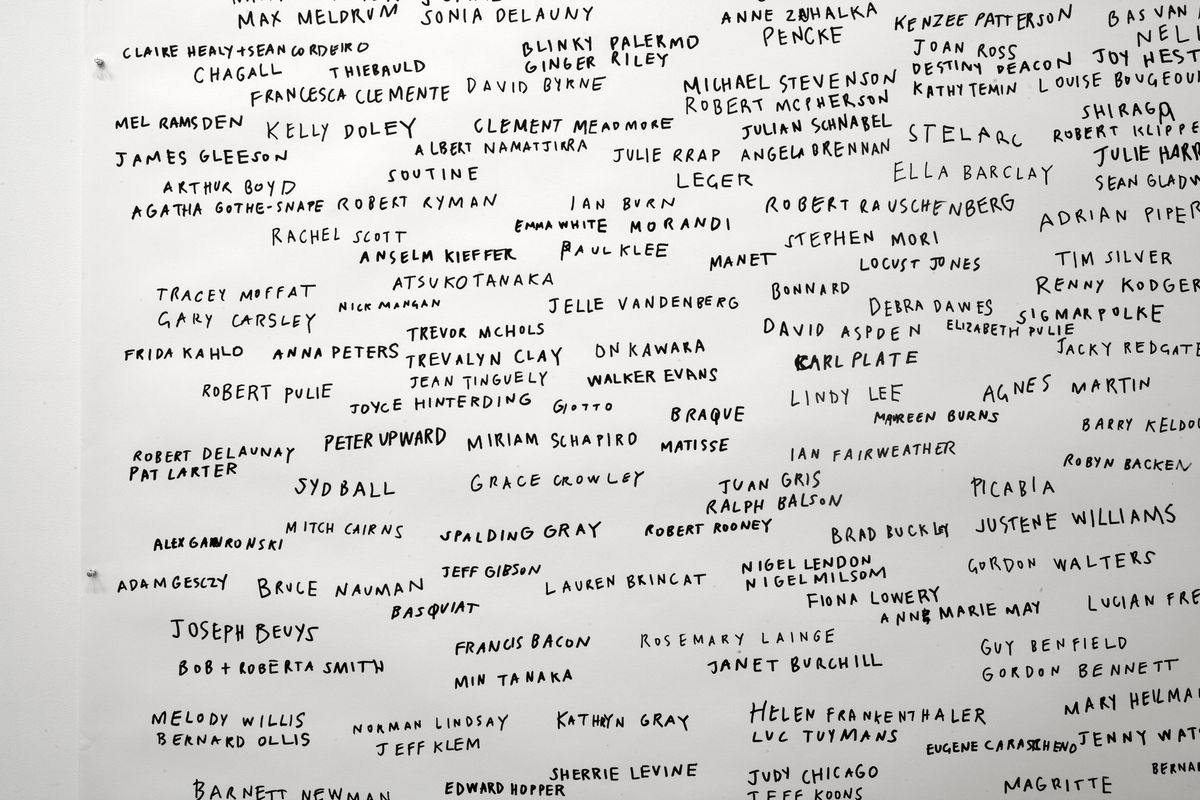 MAX MELDRUM
SONIA DELAUNY
ANNE ZAHALKA
KENZEE PATTERSON
BAS VAN
CLAIRE HEALY + SEAN CORDEIRO
BLINKY PALERMO
PENCKE
JOAN ROSS
CHAGALL
THIEBAULD
GINGER RILEY
DESTINY DEACON
JOY HEST
FRANCESCA CLEMENTE
DAVID BYRNE
MICHAEL STEVENSON
KATHY TEMIN
LOUISE BOUGEOU
ROBERT MCPHERSON
SHIRAGA
MEL RAMSDEN
KELLY DOLEY
CLEMENT MEADMORE
JULIAN SCHNABEL
STELARC
ROBERT KLIPPE
JAMES GLEESON
ALBERT NAMATJIRRA
JULIE RRAP
ANGELA BRENNAN
JULIE HARR
ARTHUR BOYD
SOUTINE
LEGER
ELLA BARCLAY
SEAN GLADW
AGATHA GOTHE-SNAPE
ROBERT RYMAN
IAN BURN
ROBERT RAUSCHENBERG
ADRIAN PIPER
RACHEL SCOTT
EMMA WHITE
MORANDI
STEPHEN MORI
ANSELM KIEFFER
PAUL KLEE
MANET
LOCUST JONES
TIM SILVER
TRACEY MOFFAT
ATSUKO TANAKA
BONNARD
RENNY KODGER
NICK MANGAN
JELLE VANDENBERG
DEBRA DAWES
SIGMAR POLKE
GARY CARSLEY
TREVOR MCHOLS
DAVID ASPDEN
ELIZABETH PULIE
FRIDA KAHLO
ANNA PETERS
TREVALYN CLAY
ON KAWARA
KARL PLATE
JACKY REDGATE
ROBERT PULIE
JEAN TINGUELY
WALKER EVANS
LINDY LEE
AGNES MARTIN
JOYCE HINTERDING
GIOTTO
BRAQUE
MAUREEN BURNS
BARRY KELDOU
ROBERT DELAUNAY
PETER UPWARD
MIRIAM SCHAPIRO
MATISSE
IAN FAIRWEATHER
PAT LARTER
ROBYN BACKEN
SYD BALL
GRACE CROWLEY
JUAN GRIS
PICABIA
RALPH BALSON
MITCH CAIRNS
SPALDING GRAY
ROBERT ROONEY
BRAD BUCKLEY
JUSTENE WILLIAMS
ALEX GAWRONSKI
ADAM GESCZY
BRUCE NAUMAN
JEFF GIBSON
LAUREN BRINCAT
NIGEL LENDON
GORDON WALTERS
NIGEL MILSOM
BASQUIAT
FIONA LOWERY
ANNE MARIE MAY
LUCIAN FRE
JOSEPH BEUYS
FRANCIS BACON
ROSEMARY LAINGE
GUY BENFIELD
BOB + ROBERTA SMITH
MIN TANAKA
JANET BURCHILL
GORDON BENNETT
MELODY WILLIS
NORMAN LINDSAY
KATHRYN GRAY
HELEN FRANKENTHALER
MARY HEILMAN
BERNARD OLLIS
JEFF KLEM
LUC TUYMANS
JENNY WAT
BARNETT NEWMAN
EDWARD HOPPER
SHERRIE LEVINE
JUDY CHICAGO
MAGRITTE
BERNA
JEFF KOONS